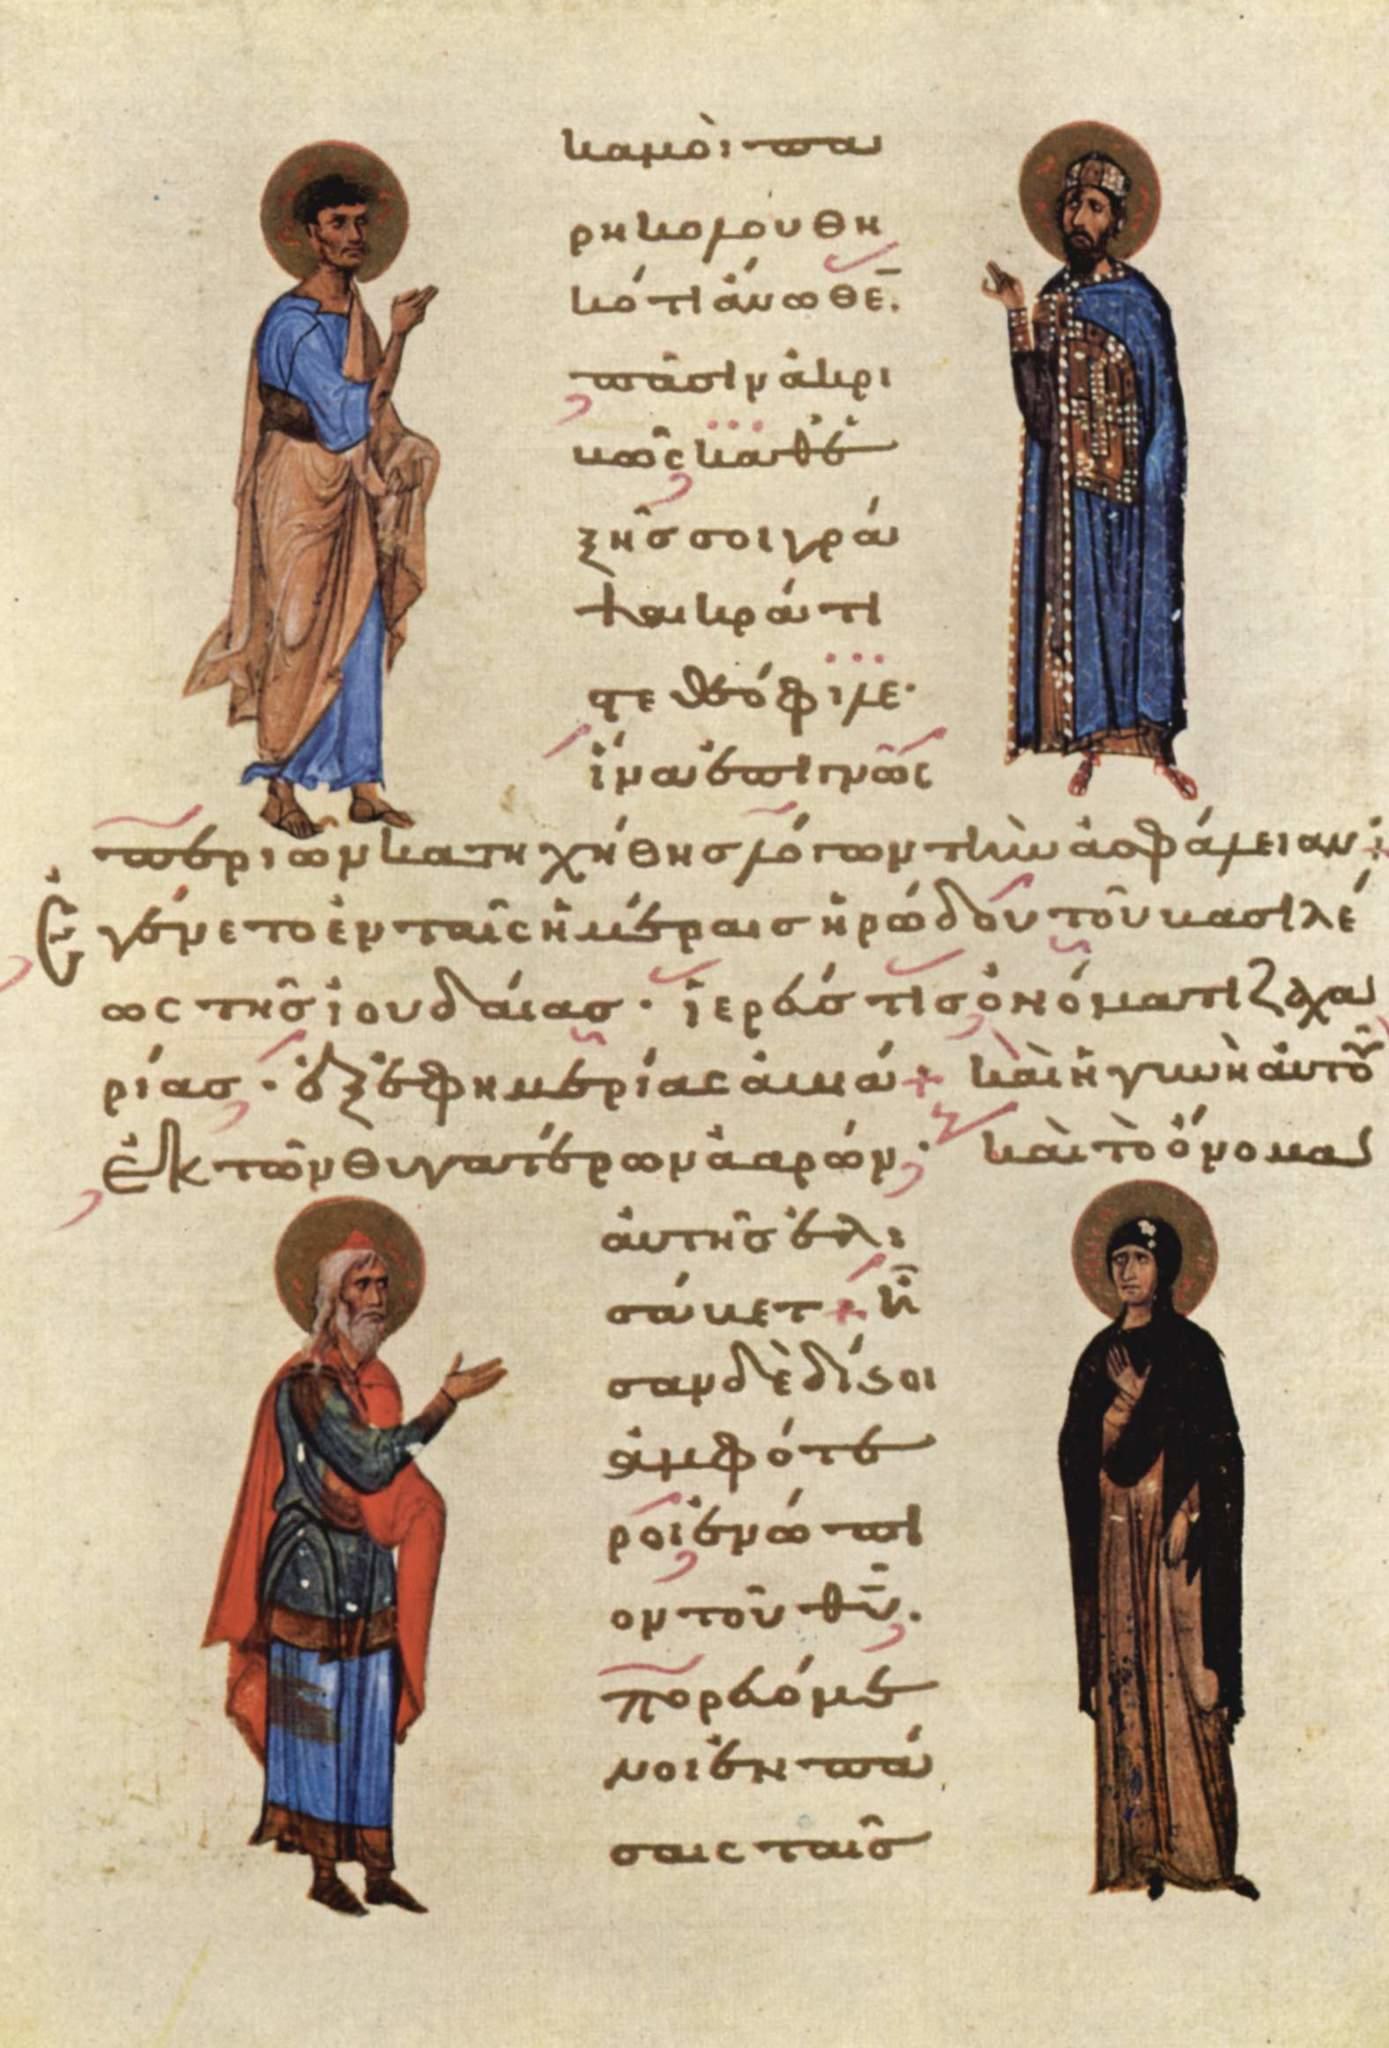 κἀμοὶ πα
ρηκολουθη
κότι ἄνωθε̄.
πᾶσιν ἀκρι
βῶς καθε
ξῆς σοι γρά
ψαι κράτι
στε θεόφιλε·
ἵνα ἐπιγνῶς
περὶ ὧν κατηχήθης λόγων τὴν ἀσφάλειαν:
Ἐγένετο ἐν ταῖς ἡμέραις ἡρώδου τοῦ βασιλέ
ως τῆς ἰουδαίας· ἱερεύς τις ὀνόματι ζαχα
ρίας· ἐξ ἐφημερίας ἀβιά + καὶ ἡ γυνὴ αὐτοῦ
ἐκ τῶν θυγατέρων ἀαρών· καὶ τὸ ὄνομα
αὐτῆς ἐλι
σάβετ + ἦ
σαν δὲ δίκαιοι
ἀμφότε
ροι ἐνώπι
ον τοῦ θ̄ῡ.
πορευόμε
νοι ἐν πά
σαις ταῖς